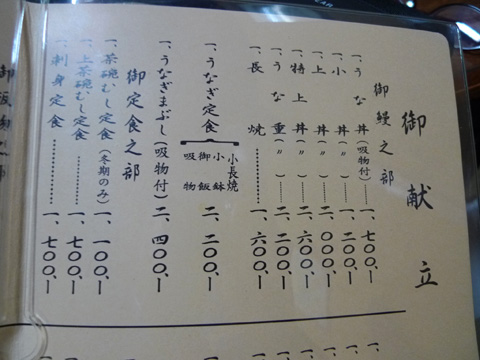 御献立
御鰻之部
一、うな丼(吸物付)……一、七〇〇、ー
一、小丼(〃)……一、二〇〇、ー
一、上丼(〃)……二、〇〇〇、ー
一、特上丼(〃)……二、六〇〇、ー
一、うな重(〃)……二、〇〇〇、ー
一、長焼…………一、六〇〇、ー
一、うなぎ定食 小長焼 小鉢 御飯 吸物 二、二〇〇、ー
一、うなぎまぶし(吸物付)二、四〇〇、ー
御定食之部
一、茶碗むし定食(冬期のみ)一、一〇〇、ー
一、上茶碗むし定食…………一、七〇〇、ー
一、刺身定食…………一、七〇〇、ー